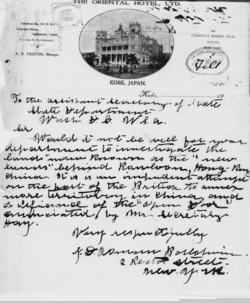 THE ORIENTAL HOTEL, LTD.
KOBE, JAPAN.
Kobe,
To the assistant secretary of State
State Department
Wash D C U.S.A.
Sir
Would it not be well for your
department to investigate the
land now known as the "new
behind Kowloon, Hong Kong
China. It is an
on the part of the British to annex
more territory in China and
a defiance of the "open door"
enunciated by Mr Secretary
Hay.
Very respectfully
Baldwin
2 Street
New York